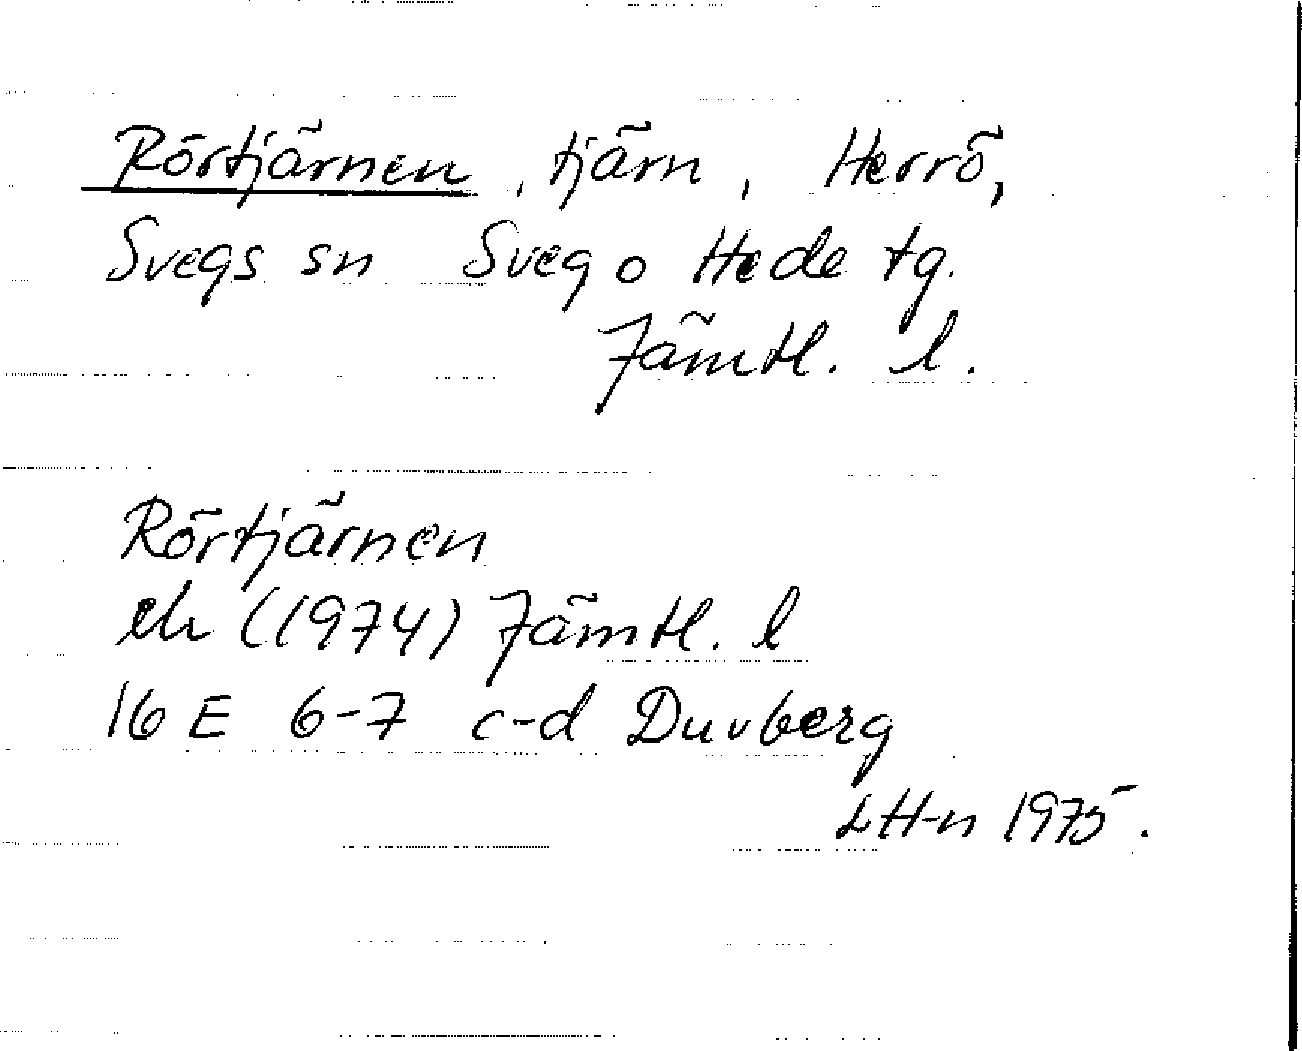 Rörtjärnen, tjärn, Herrö,
Svegs sn Sveg o Hede tg.
Jämtl. l.
Rörtjärnen
ek (1974) Jämtl. l
16 E 6-7 c-d Duvberg
LH-n 1975.